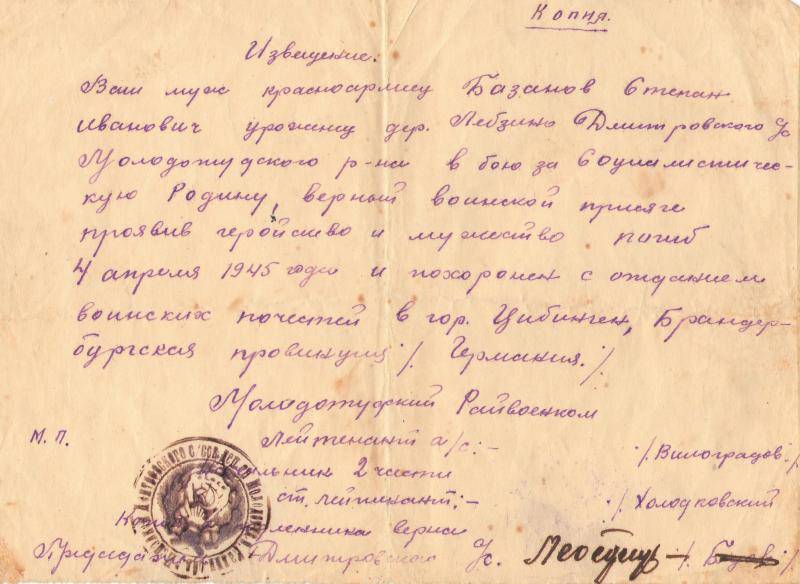 Копия.
Извещение.
Ваш муж красноармиец Базанов Степан
Иванович урожинец дер. Лебзино Дмитровского с/с
Молодотудского р-на в бою за Социалистичес-
кую Родину, верный воинской присяге
проявив геройство и мужество погиб
4 апреля 1945 года и похоронен с отданием
воинских почестей в гор. Цибинген, Брандер-
бургская провинция /. Германия. /.
Молодотудский Райвоенком
М. П. Лейтенант а/с:- /. Виноградов. /.
Начальник 2 части
ст. лейтинант:- /. Холодковский
Копия подленника верна
Председатель Дмитровского с/с.